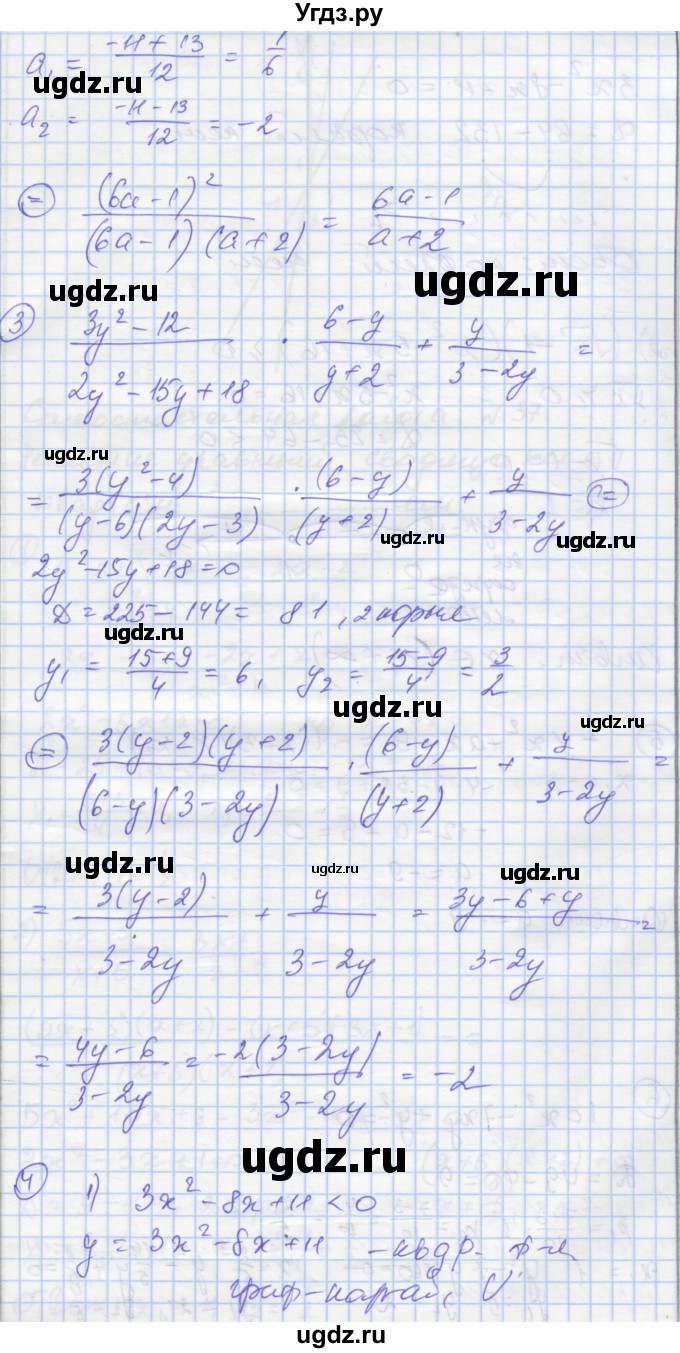 Угдз.ру
a₁ = (-11+13)/12 = 1/6
ugdz.ru
a₂ = (-11-13)/12 = -2
ugdz.ru
⊜ (6a-1)²/((6a-1)(a+2)) = (6a-1)/(a+2)
ugdz.ru
ugdz.ru
③ (3y²-12)/(2y²-15y+18) · (6-y)/(y+2) + y/(3-2y) =
ugdz.ru
ugdz.ru
= 3(y²-4)/((y-6)(2y-3)) · (6-y)/(y+2) + y/(3-2y) ⊜
ugdz.ru
2y²-15y+18=0
D = 225-144 = 81, 2 корня
ugdz.ru
y₁ = (15+9)/4 = 6, y₂ = (15-9)/4 = 3/2
ugdz.ru
ugdz.ru
⊜ 3(y-2)(y+2)/((6-y)(3-2y)) · (6-y)/(y+2) + y/(3-2y) =
ugdz.ru
ugdz.ru
ugdz.ru
= 3(y-2)/(3-2y) + y/(3-2y) = (3y-6+y)/(3-2y) =
= (4y-6)/(3-2y) = -2(3-2y)/(3-2y) = -2
ugdz.ru
④ 1) 3x²-8x+11<0
y = 3x²-8x+11 - квдр. ф-я,
ugdz.ru
ugdz.ru